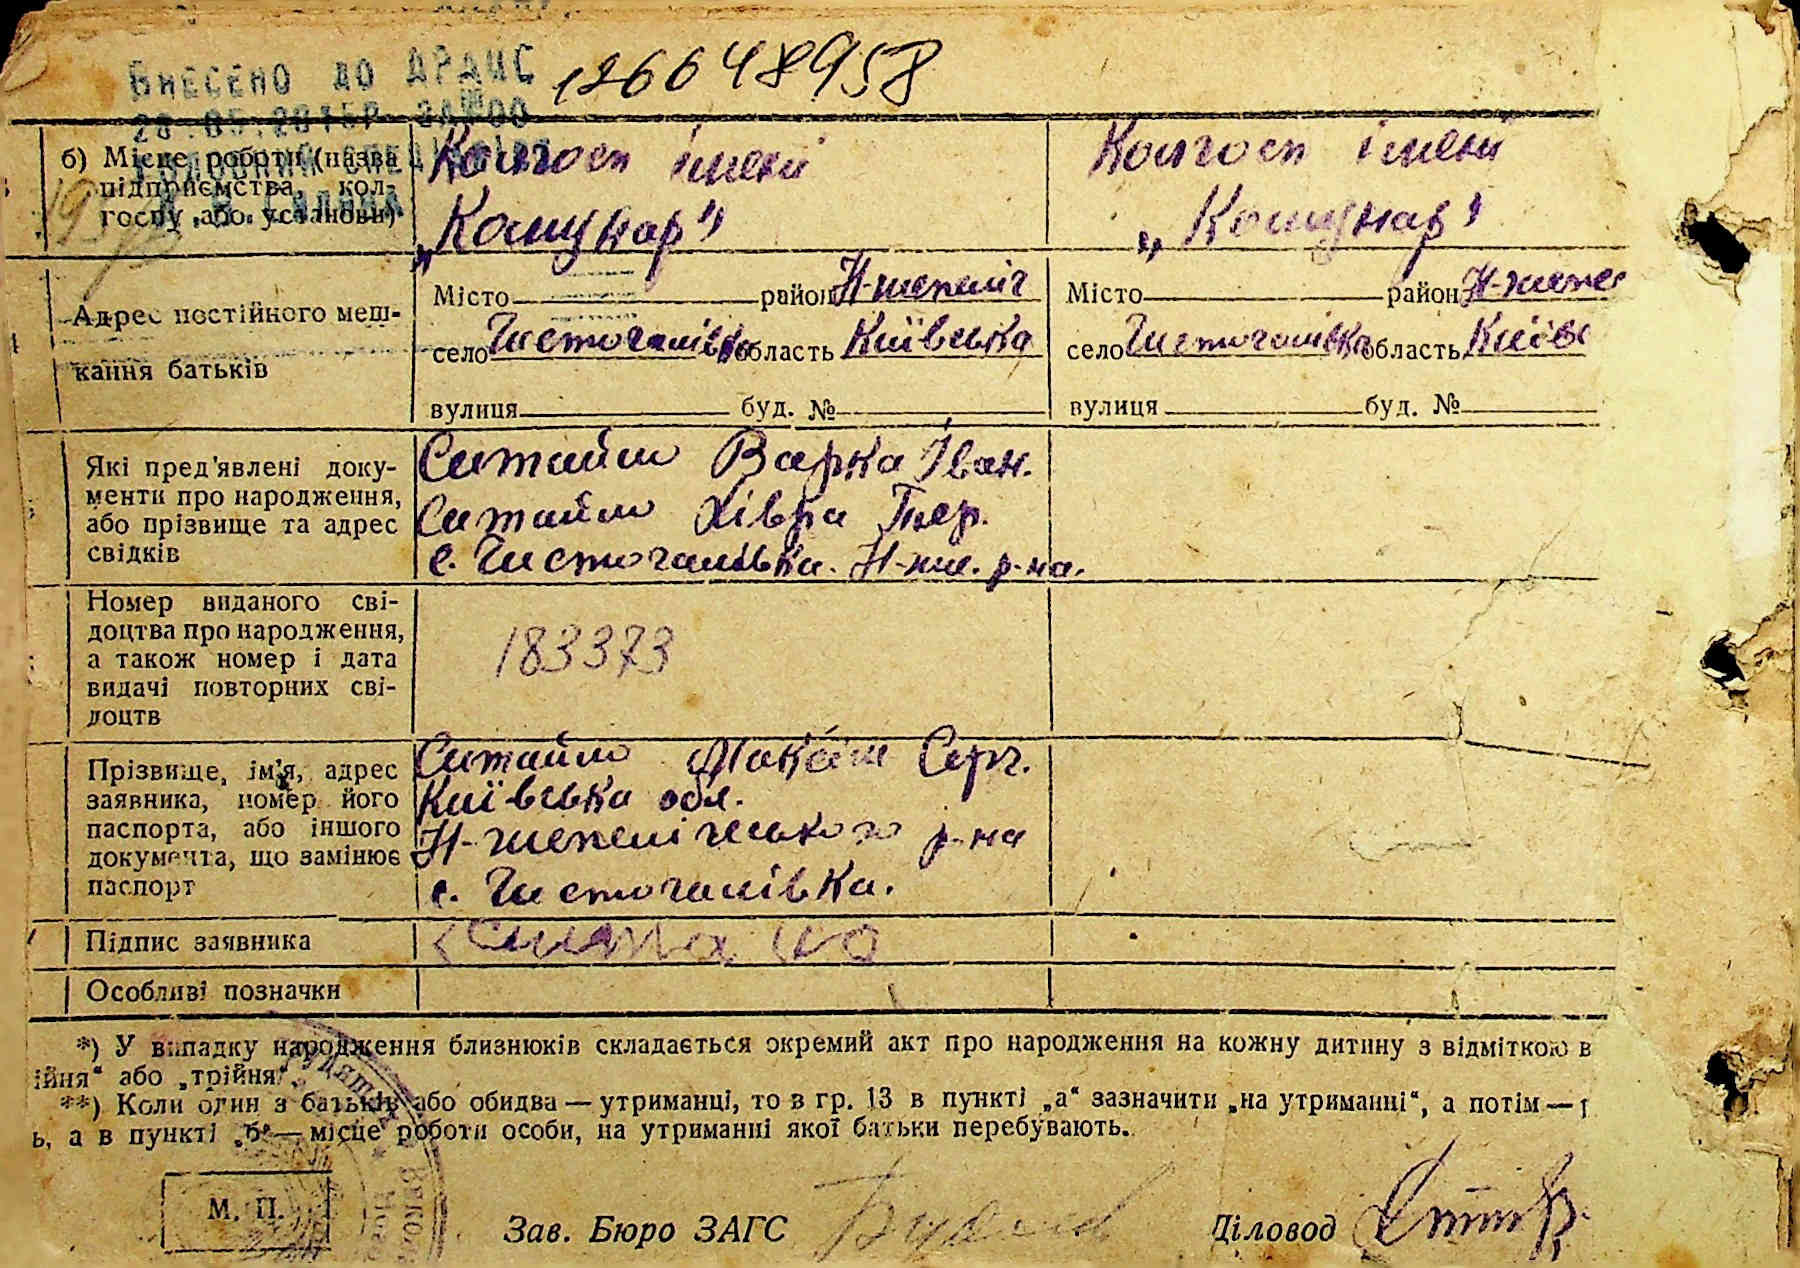 ВНЕСЕНО ДО ДРАЦС 126648958
б) Місце роботи (назва підприємства, колгоспу або установи)
Колгосп імені
„Комунар"
Колгосп імені
„Комунар"
Адрес постійного меш-
кання батьків
Місто район Н-шепеліч
село Чистогалівка область Київська
вулиця буд. №
Місто район Н-шепе
село Чистогалівка область Київс
вулиця буд. №
Які пред'явлені доку-
менти про народження,
або прізвище та адрес
свідків
Ситайло Варка Іван.
Ситайло Хівра
с. Чистогалівка. Н-ше. р-на.
Номер виданого сві-
доцтва про народження,
а також номер і дата
видачі повторних сві-
доцтв
183373
Прізвище, ім'я, адрес
заявника, номер його
паспорта, або іншого
документа, що замінює
паспорт
Ситайло Серг.
Київська обл.
Н-шепелічеського р-на
с. Чистогалівка.
Підпис заявника
Особливі позначки
*) У випадку народження близнюків складається окремий акт про народження на кожну дитину з відміткою в
ійня“ або „трійня“
**) Коли один з батьків або обидва — утриманці, то в гр. 13 в пункті „а“ зазначити „на утриманні“, а потім —
ь, а в пункті „б“ — місце роботи особи, на утриманні якої батьки перебувають.
М. П.
Зав. Бюро ЗАГС Діловод